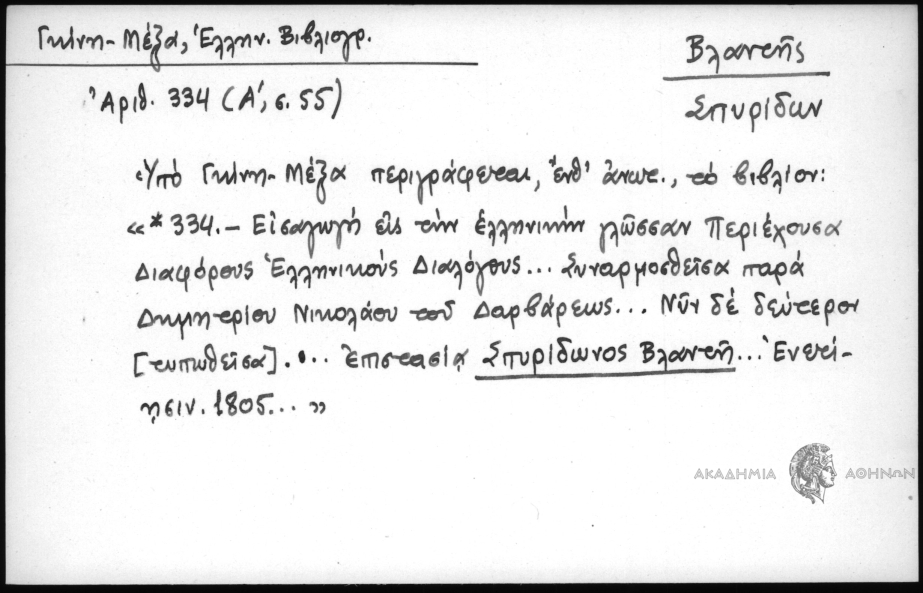 Γκίνη-Μέξα, Ἑλλην. Βιβλιογρ.
Βλαντῆς
Σπυρίδων
Ἀριθ. 334 (Α΄, σ. 55)
Ὑπὸ Γκίνη-Μέξα περιγράφεται, ἔνθ' ἀνωτ., τὸ βιβλίον:
«*334.- Εἰσαγωγή εἰς τὴν ἑλληνικὴν γλῶσσαν Περιέχουσα
Διαφόρους Ἑλληνικοὺς Διαλόγους... Συναρμοσθεῖσα παρὰ
Δημητρίου Νικολάου τοῦ Δαρβάρεως... Νῦν δὲ δεύτερον
[τυπωθεῖσα].... ἐπιστασίᾳ Σπυρίδωνος Βλαντῆ... Ἐνετί-
ῃσιν. 1805... »
ΑΚΑΔΗΜΙΑ ΑΘΗΝΩΝ